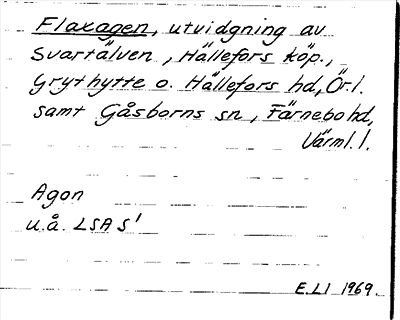 Flaxagen, utvidgning av
Svartälven, Hällefors köp.,
Grythytte o. Hällefors hd, Ör. l.
samt Gåsborns sn, Färnebo hd,
Värml. l.
Agon
u.å. LSA S'
E.LI 1969.